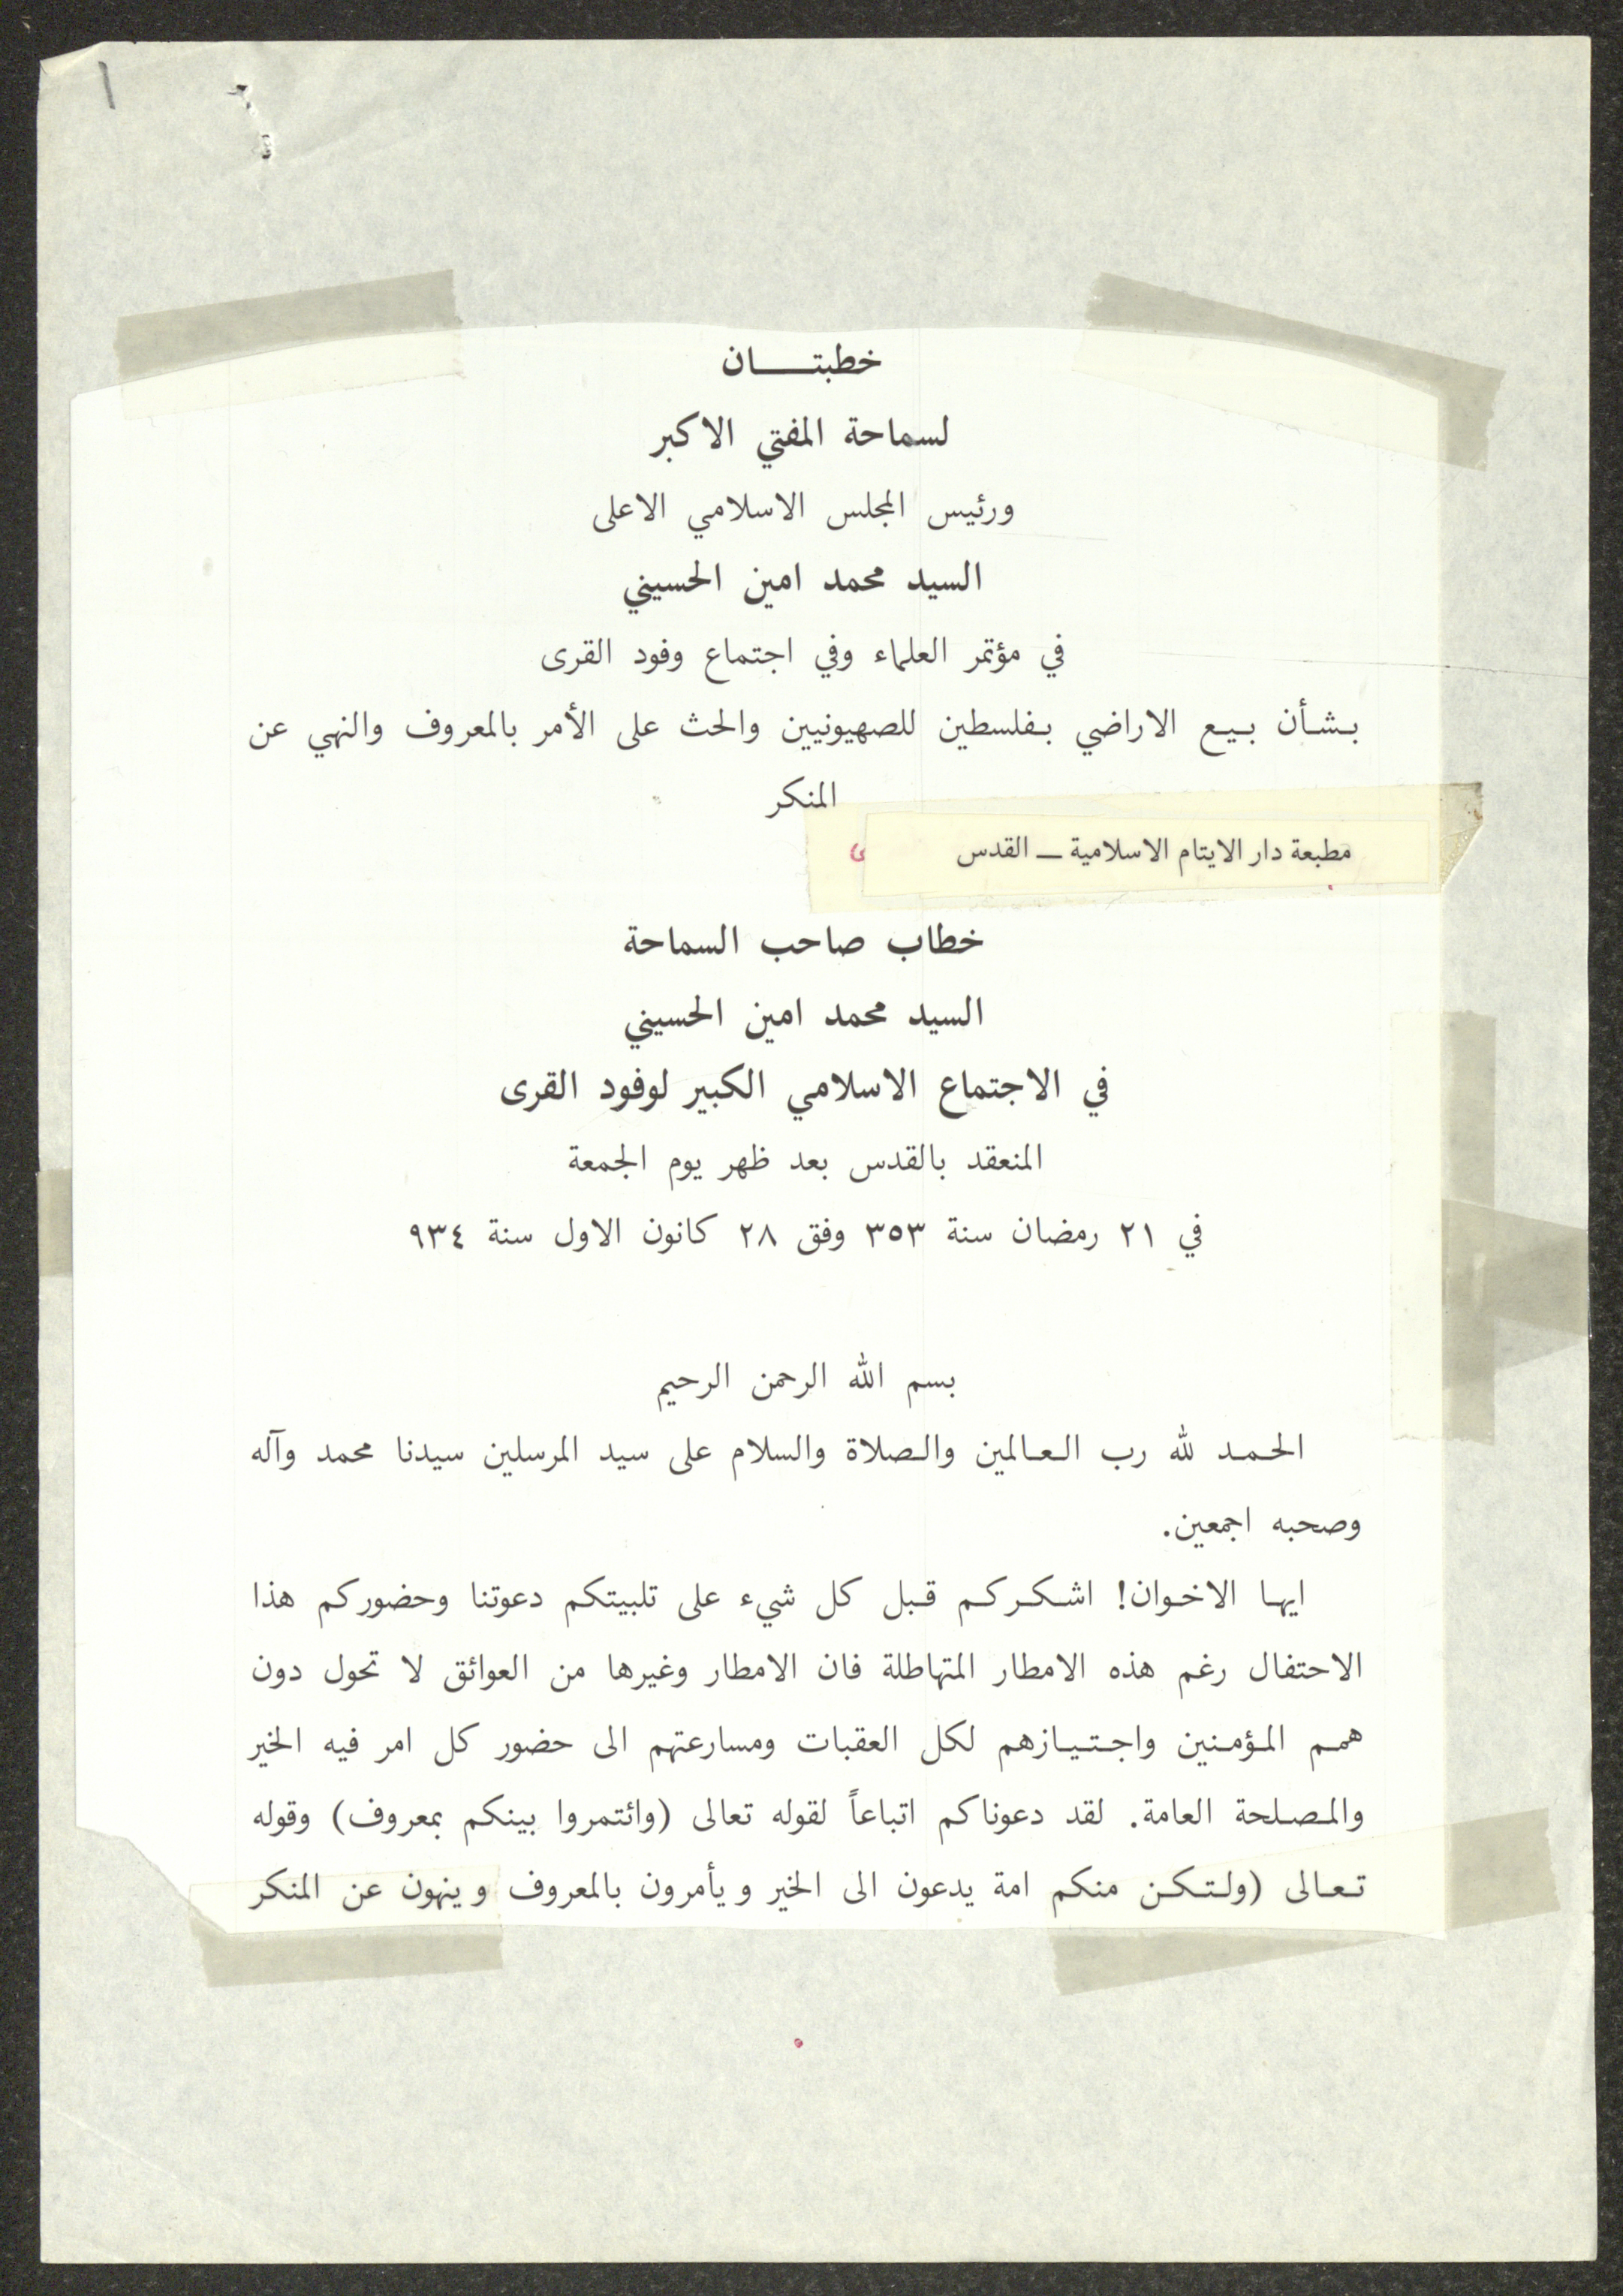 ١
خطبتـــــان
لسماحة المفتي الاكبر
ورئيس المجلس الاسلامي الاعلى
السيد محمد امين الحسيني
في مؤتمر العلماء وفي اجتماع وفود القرى
بشأن بيع الاراضي بفلسطين للصهيونيين والحث على الأمر بالمعروف والنهي عن
المنكر
مطبعة دار الايتام الاسلامية ــ القدس
خطاب صاحب السماحة
السيد محمد امين الحسيني
في الاجتماع الاسلامي الكبير لوفود القرى
المنعقد بالقدس بعد ظهر يوم الجمعة
في ٢١ رمضان سنة ٣٥٣ وفق ٢٨ كانون الاول سنة ٩٣٤
بسم الله الرحمن الرحيم
الحمد لله رب العالمين والصلاة والسلام على سيد المرسلين سيدنا محمد وآله
وصحبه اجمعين.
ايها الاخوان! اشكركم قبل كل شيء على تلبيتكم دعوتنا وحضوركم هذا
الاحتفال رغم هذه الامطار المتهاطلة فان الامطار وغيرها من العوائق لا تحول دون
همم المؤمنين واجتيازهم لكل العقبات ومسارعتهم الى حضور كل امر فيه الخير
والمصلحة العامة. لقد دعوناكم اتباعاً لقوله تعالى (وائتمروا بينكم بمعروف) وقوله
تعالى (ولتكن منكم امة يدعون الى الخير ويأمرون بالمعروف وينهون عن المنكر